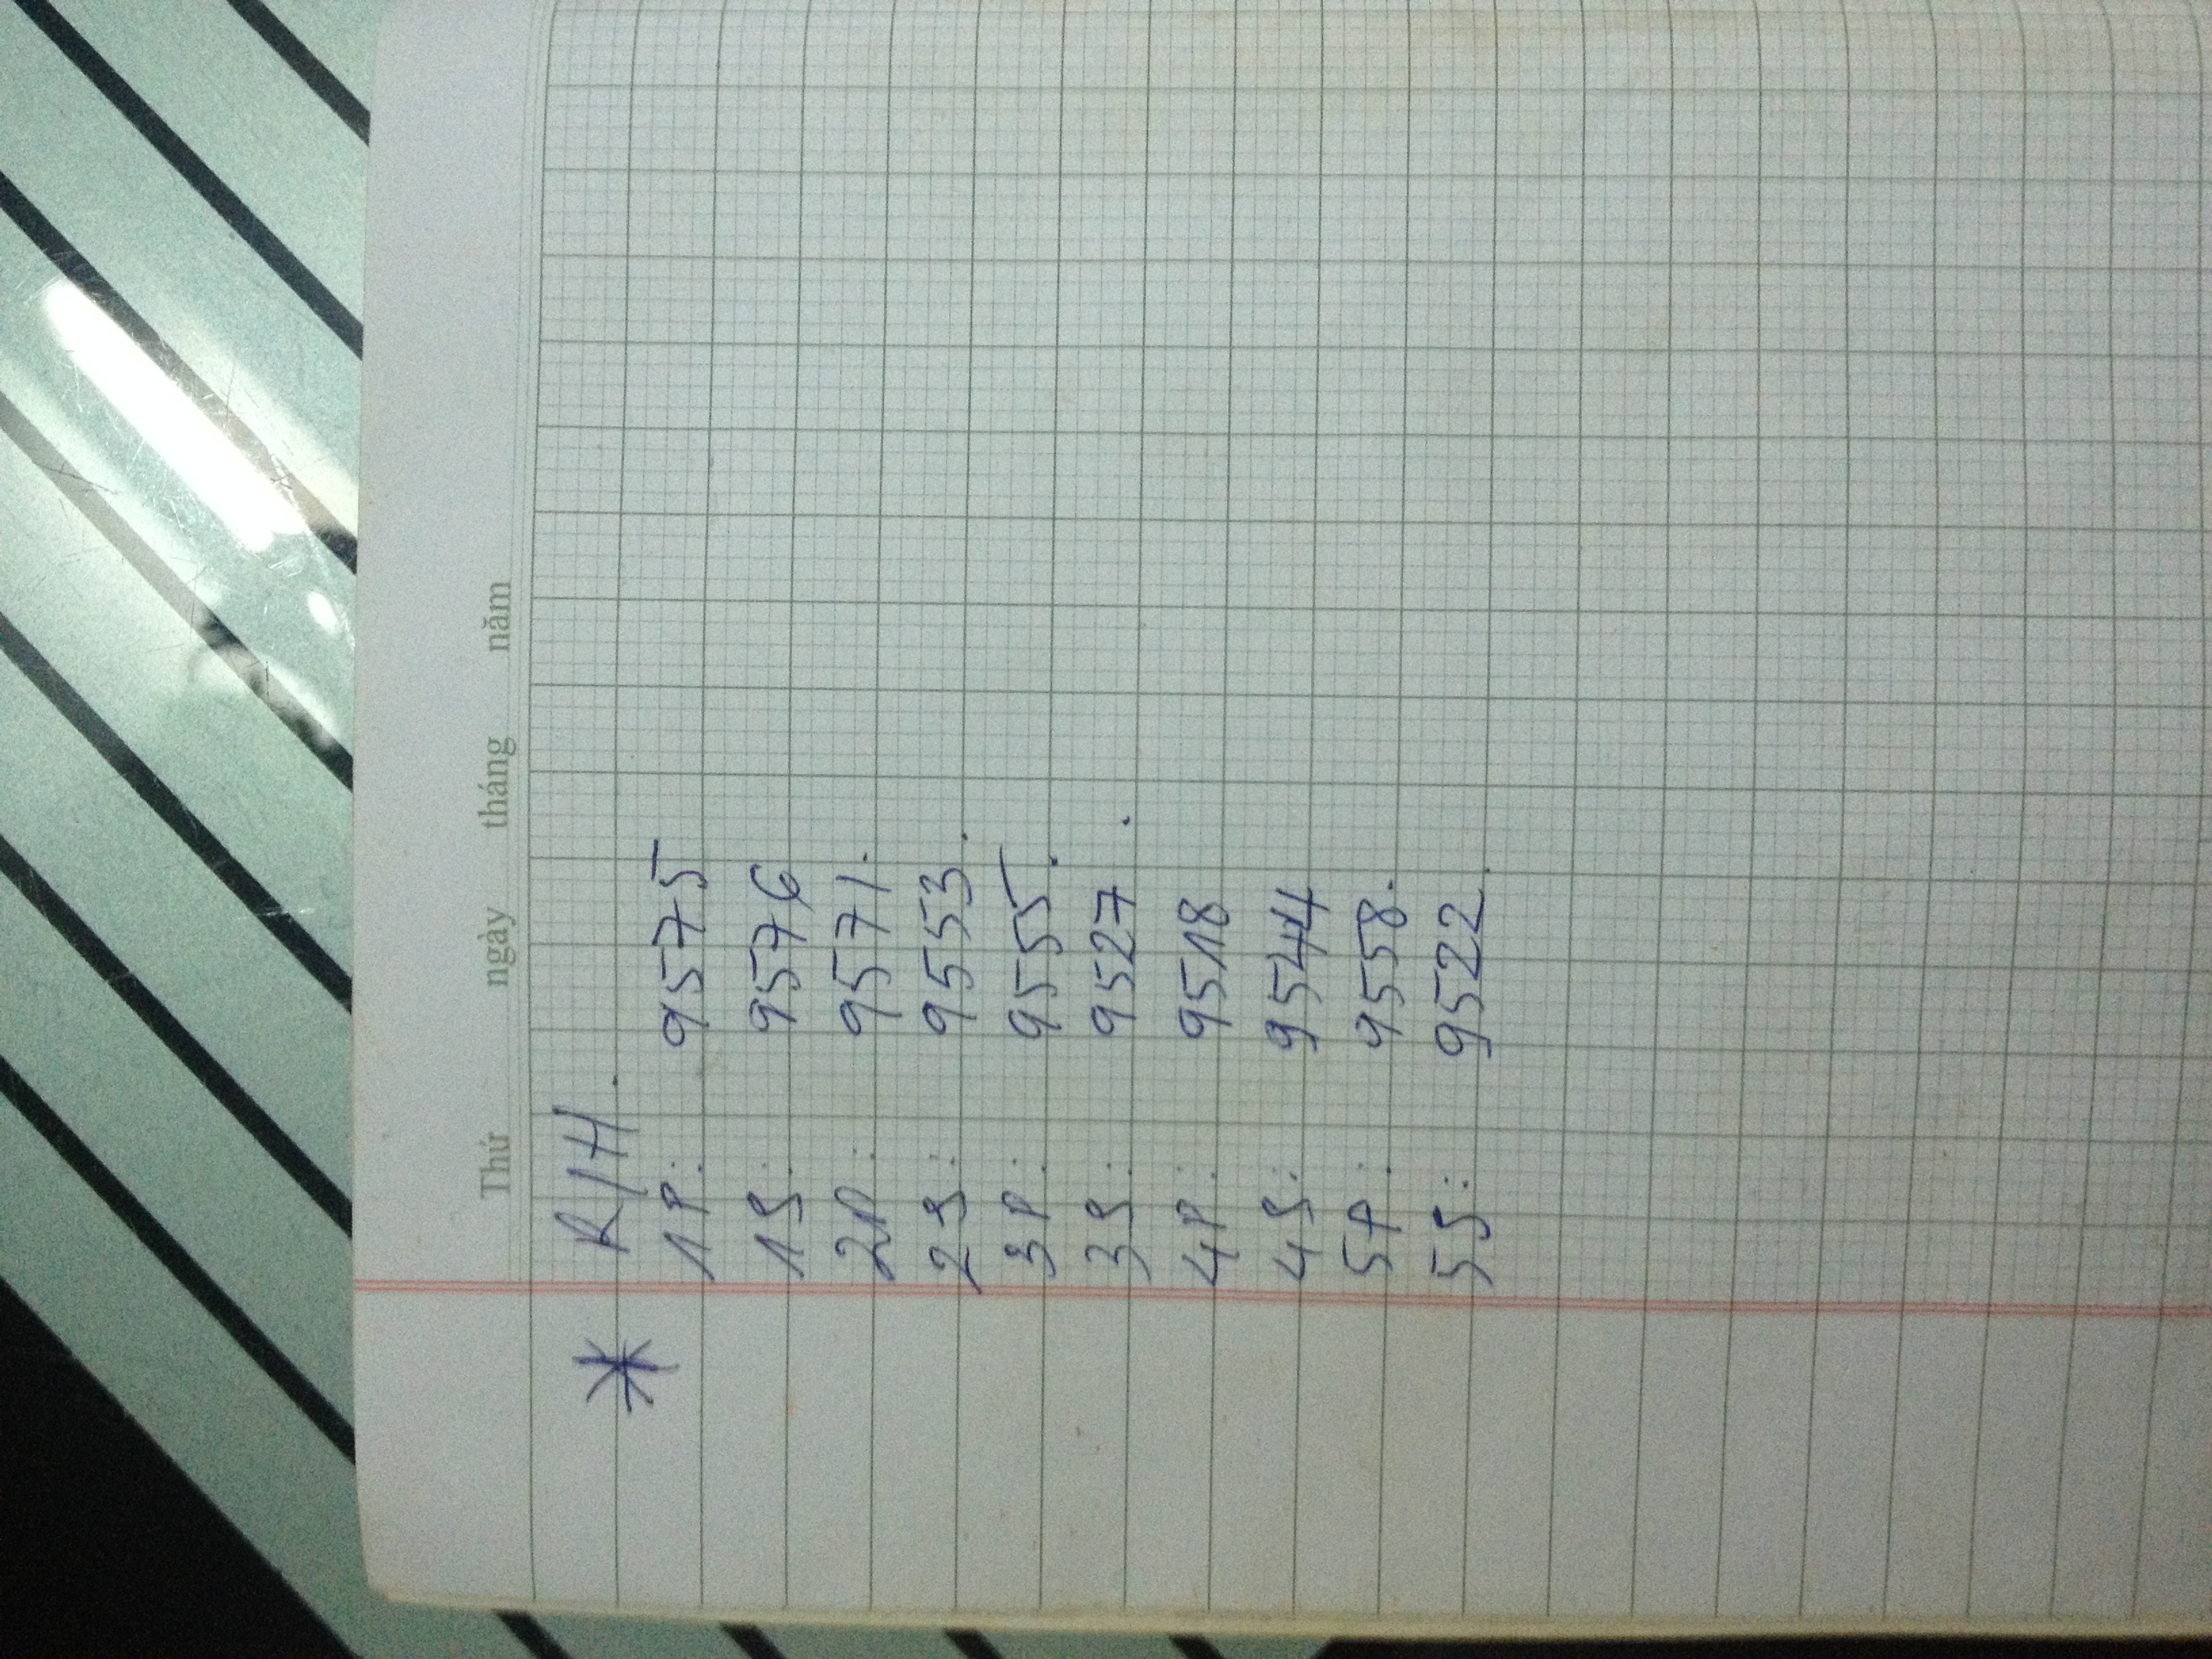 Thứ ngày tháng năm
* R/H.
1P: 9575
1S: 9576
2P: 9571.
2S: 9553.
3P: 9555.
3S: 9527.
4P: 9518
4S: 9544
5P: 9558.
5S: 9522.